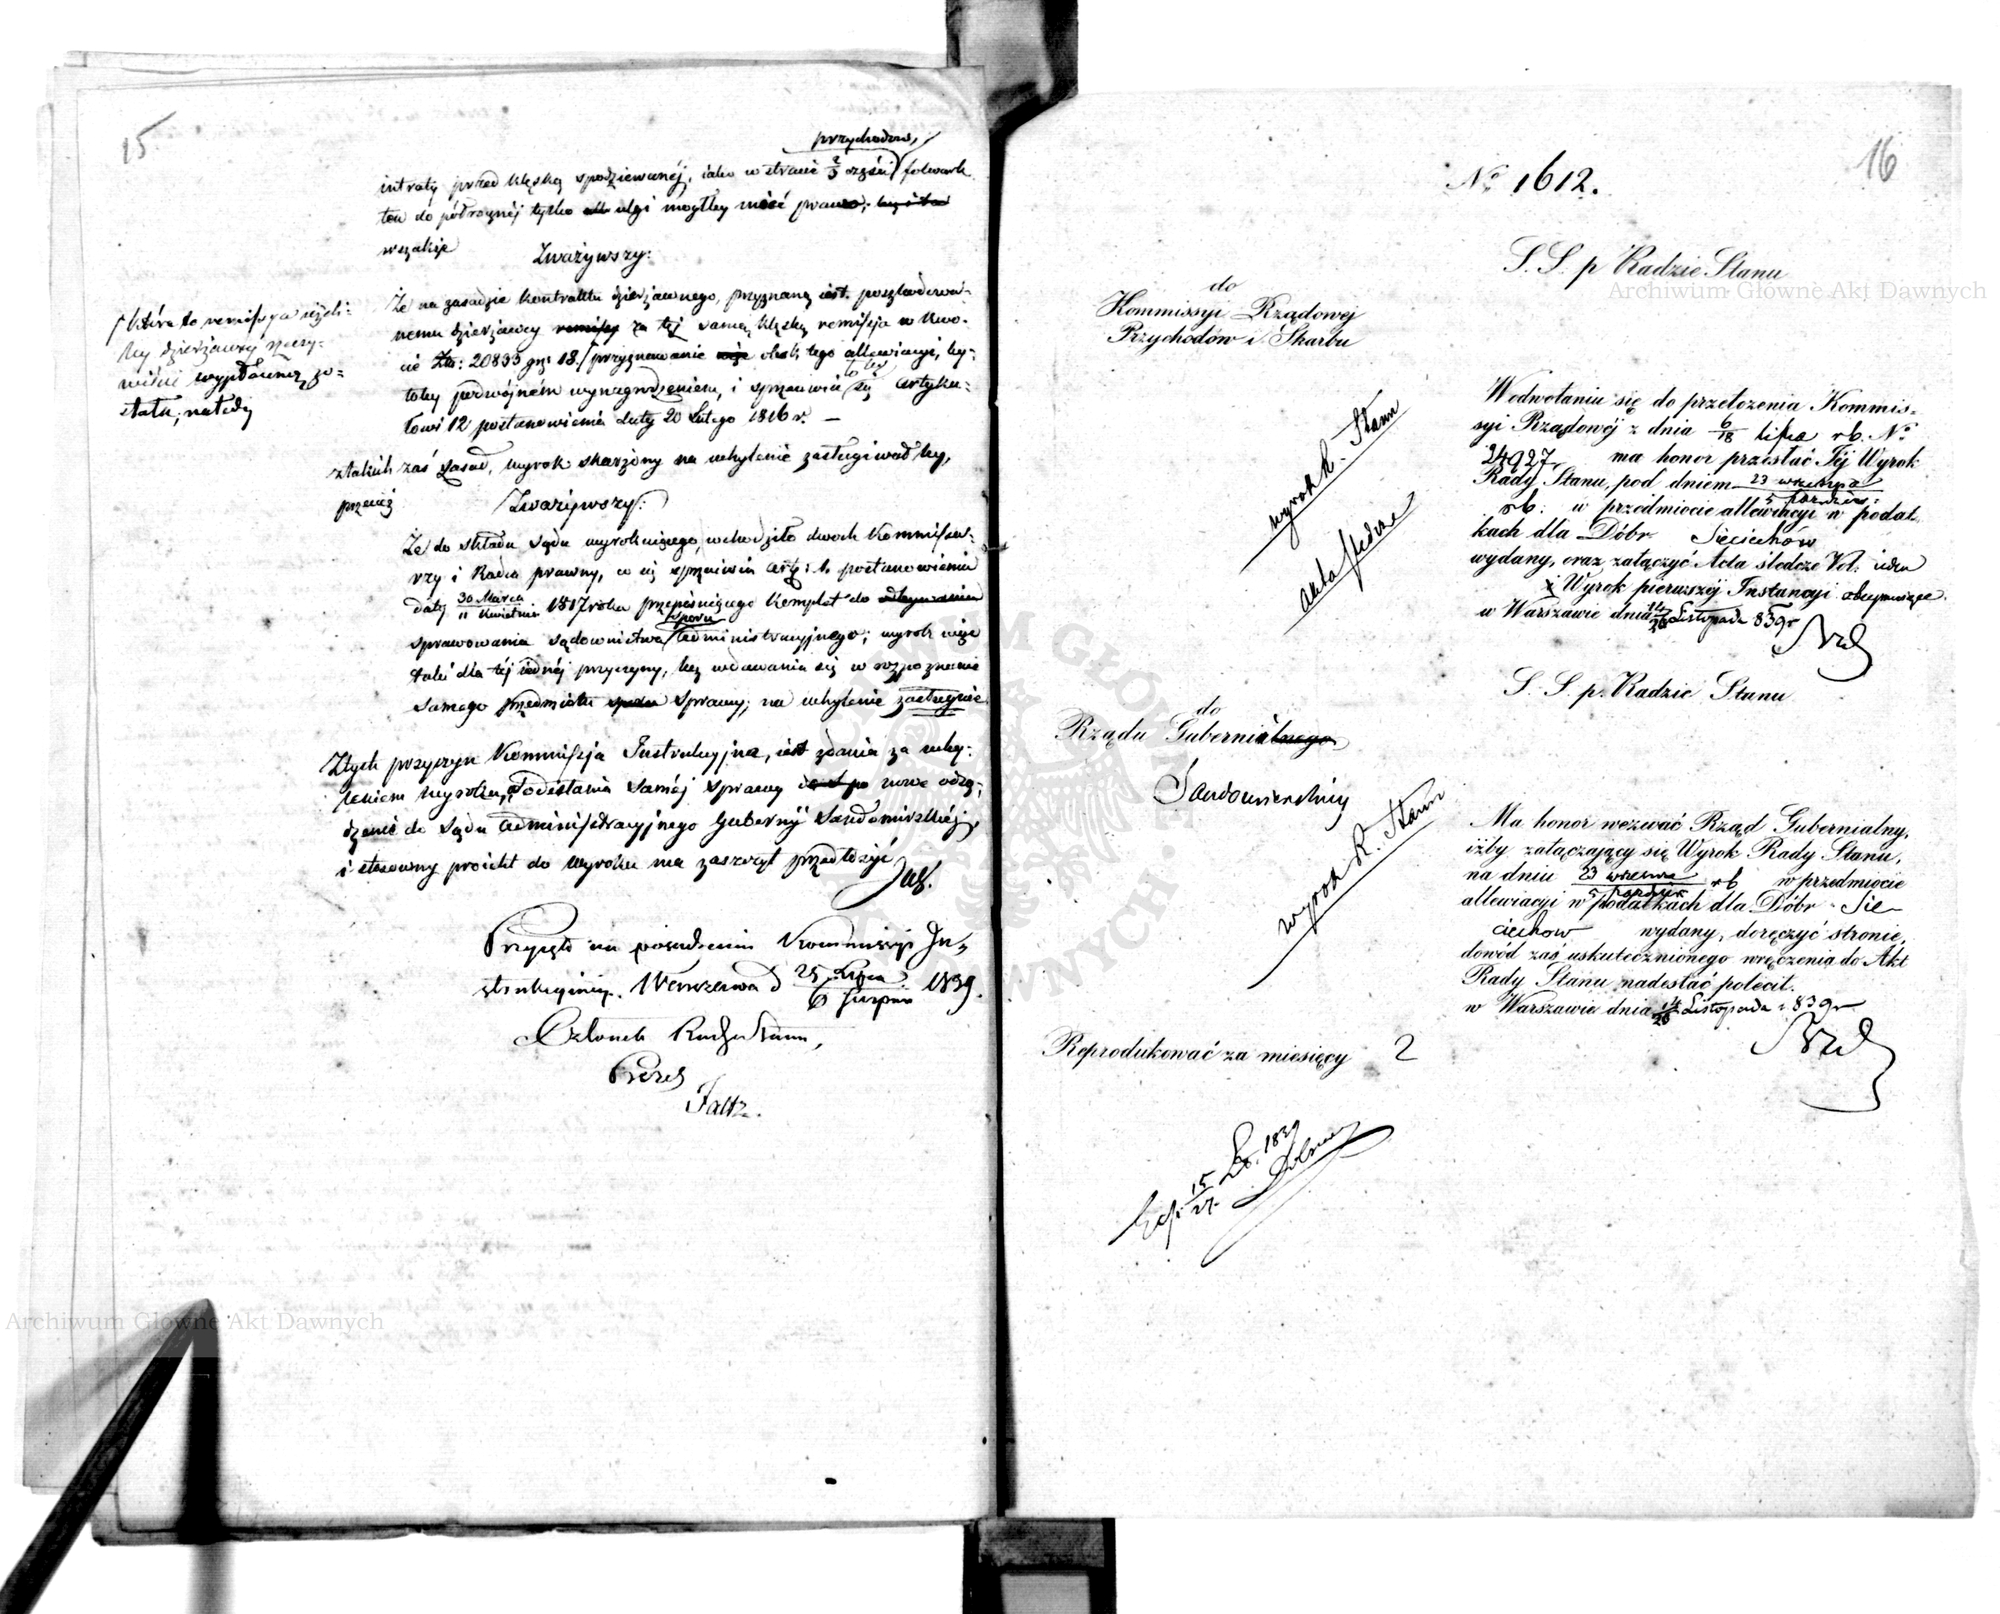 15
przychodów,
intraty przed klęską spodziewanéj, iako w stracie 2/3 części folwark
ten do półrocznéj tylko ulgi mógłby mieć prawo,
wszakże
Zważywszy:
Że na zasadzie kontraktu dzierżawnego, przyznaną iest poszkodowa-
nemu dzierżawcy za tęż samą klęskę remissja w kwo-
cie Złp: 20833 gr: 18. przyznawanie obok tego allewiacyi, by-
łoby podwójném wynagrodzeniem, i sprzeciwia się artyku-
łowi 12 postanowienia daty 20 Lutego 1816 r. —
które to remissya ieżeli-
by dzierżawcy rzeczy-
wiście wypłaconą zo-
stała, natedy
z takich zaś zasad, wyrok skarżony na uchylenie zasługiwałby,
przecież
Zważywszy:
Że do składu sądu wyrokuiącego, wchodziło dwóch Kommissa-
rzy i Radca prawny, co się sprzeciwia arty: 1. postanowienia
daty 30 Marca / 11 Kwietnia 1817 roku przepisuiącego komplet do
sprawowania sądownictwa administracyjnego; wyrok więc
taki dla téj iednéj przyczyny, bez wdawania się w rozpoznanie
samego przedmiotu sprawy, na uchylenie zasługuie.
Z tych przyczyn Kommissja Instrukcyjna, iest zdania za uchy-
leniem wyroku, odesłania saméj sprawy nowe osą-
dzenie do Sądu Administracyjnego Gubernij Sandomirskiéj,
i stosowny proiekt do wyroku ma zaszczyt przedłożyć
Przyjęto na posiedzeniu Kommissyi In-
strukcyjnéj. Warszawa d 25 Lipca / 6 Sierpnia 1839.
Członek Rady Stanu,
Prezes
Faltz.
16
No 1612.
S. S. p Radzie Stanu
do
Kommissyi Rządowéj
Przychodów i Skarbu
Wodwołaniu się do przełożenia Kommis-
syi Rządowéj z dnia 6/18 lipca rb. No
24927, ma honor przesłać Jéj Wyrok
Rady Stanu, pod dniem 23 września / 5 paździer:
rb. w przedmiocie allewiacyi w podat-
kach dla Dóbr Sieciechów
wydany, oraz załączyć Acta śledcze Vol: ieden
i Wyrok pierwszéj Instancyi obejmuiące.
w Warszawie dnia 14/26 Listopada 839 r
wyrok R. Stanu
akta śledcze
S. S. p. Radzie Stanu
do
Rządu Gubernialnego
Sandomierskiego
Ma honor wezwać Rząd Gubernialny,
iżby załączający się Wyrok Rady Stanu,
na dniu 23 wrześnа / 5 paździer rb w przedmiocie
allewiacyi w podatkach dla Dóbr Sie-
ciechów wydany, doręczyć stronie,
dowód zaś uskutecznionego wręczenia do Akt
Rady Stanu nadesłać polecił.
w Warszawie dnia 14/26 Listopada 839 r
wyrok R. Stanu
Reprodukować za miesięcy 2
15/27 1839
Archiwum Główne Akt Dawnych
Archiwum Główne Akt Dawnych